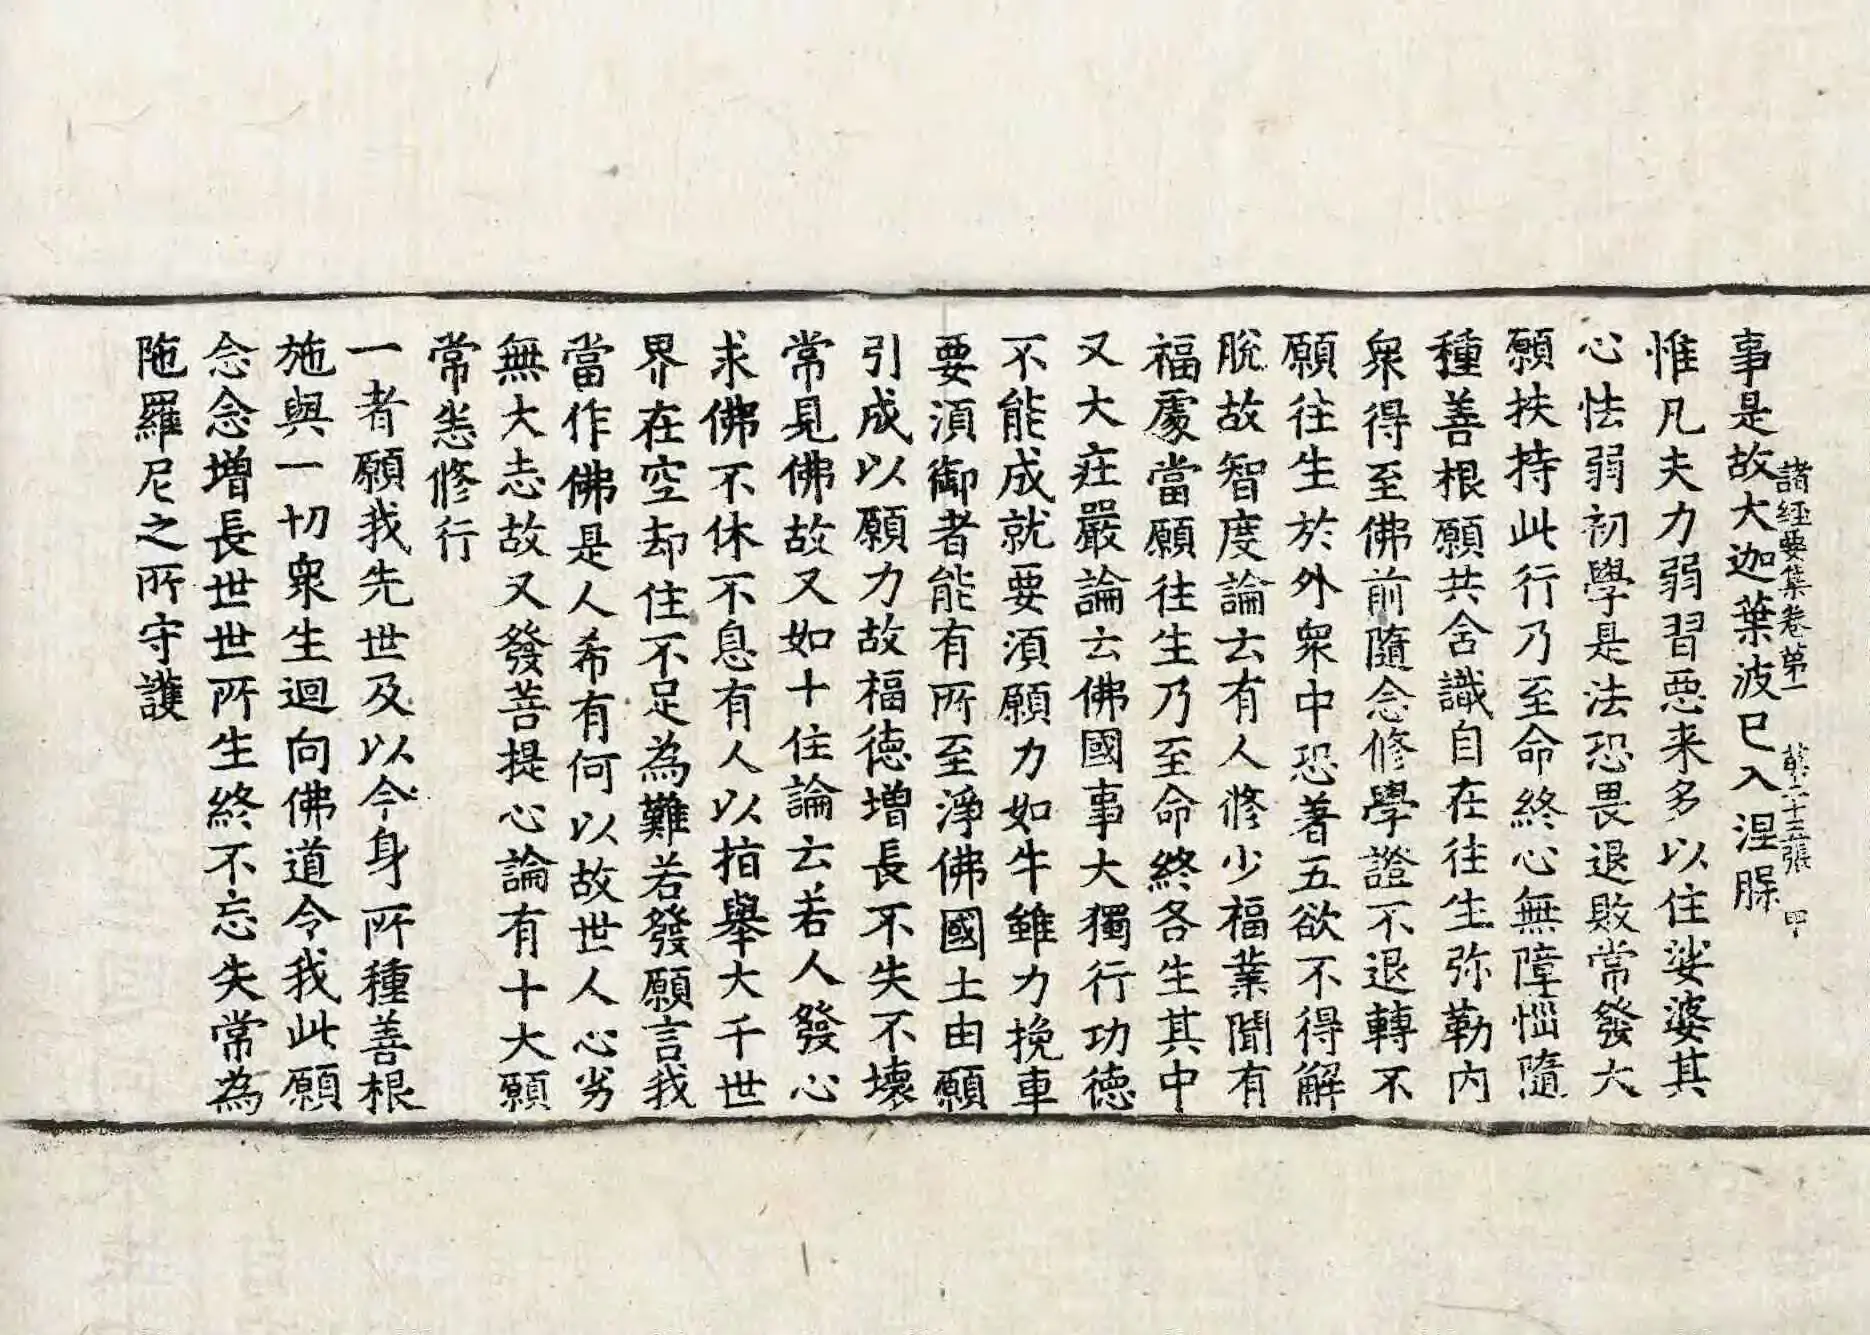 諸經要集卷第一 苐二十三張 甲
事是故大迦葉波已入涅槃
惟凡夫力弱習惡来多以住娑婆其
心怯弱初學是法恐畏退敗常發大
願扶持此行乃至命終心無障惱隨
種善根願共含識自在往生弥勒内
衆得至佛前隨念修學證不退轉不
願往生於外衆中恐著五欲不得解
脫故智度論云有人修少福業聞有
福處當願往生乃至命終各生其中
又大莊嚴論云佛國事大獨行功德
不能成就要須願力如牛雖力挽車
要須御者能有所至淨佛國土由願
引成以願力故福德增長不失不壞
常見佛故又如十住論云若人發心
求佛不休不息有人以指舉大千世
界在空却住不足為難若發願言我
當作佛是人希有何以故世人心劣
無大志故又發菩提心論有十大願
常恙修行
一者願我先世及以今身所種善根
施與一切衆生迴向佛道令我此願
念念增長世世所生終不忘失常為
陁羅尼之所守護